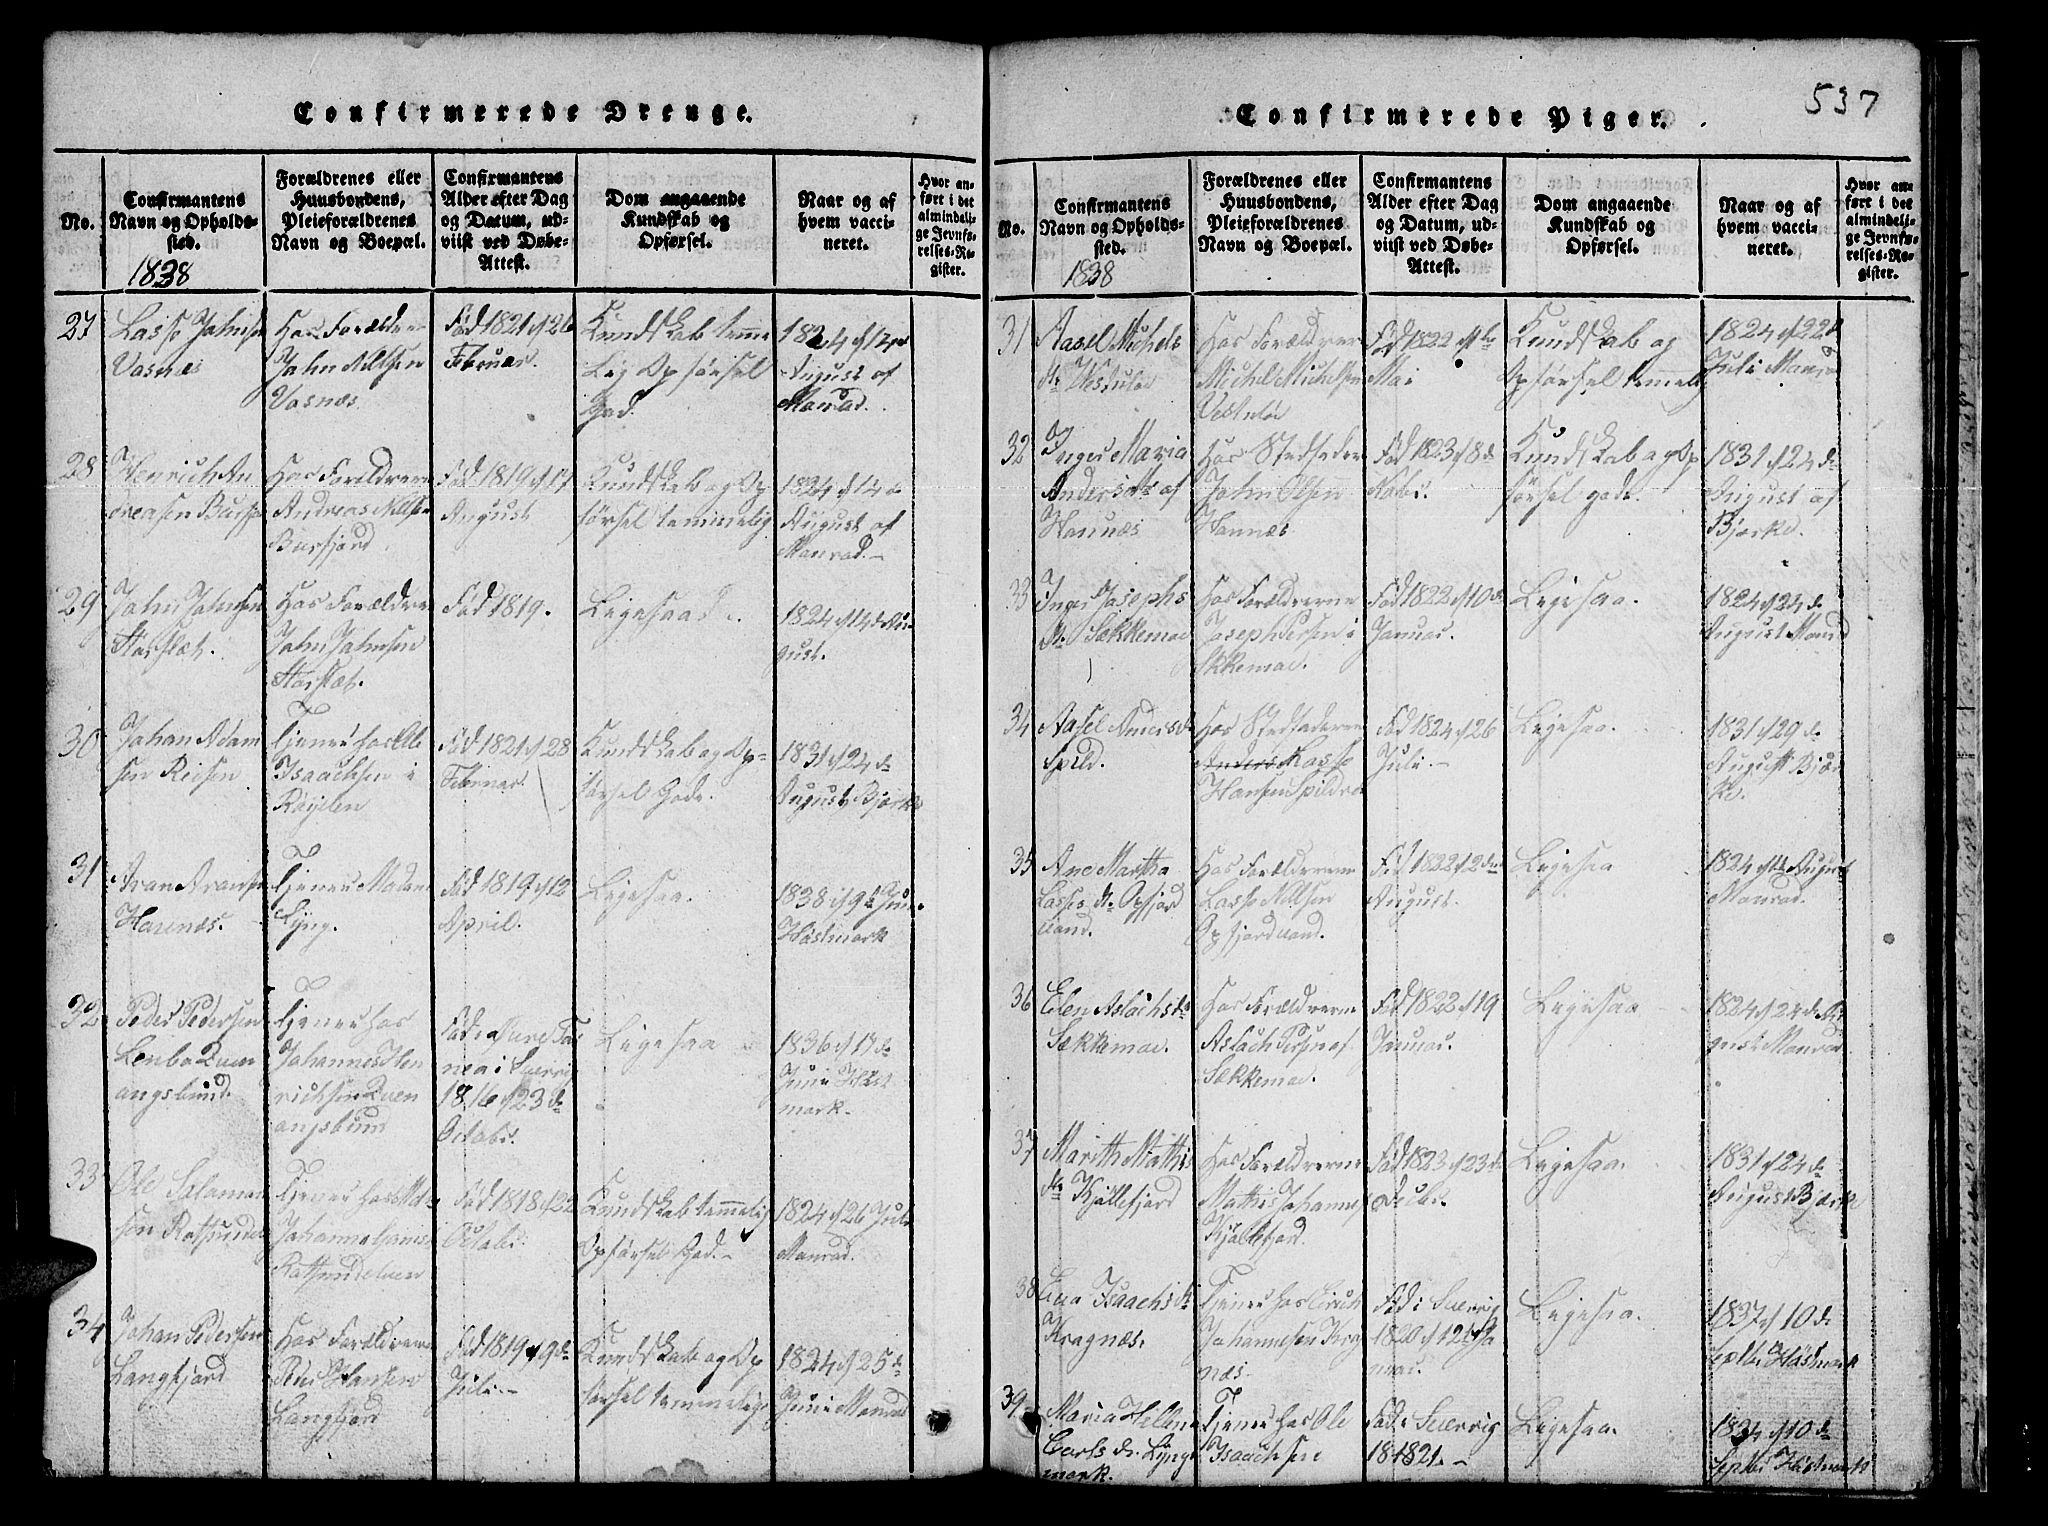 537
Confirmerede Drenge.
No.
Confirmantens
Navn og Opholds-
sted.
1838
Forældrenes eller
Huusbondens,
Pleieforældrenes
Navn og Boepæl.
Confirmantens
Alder efter Dag
og Datum, ud-
viist ved Døbe-
Attest.
Dom angaaende
Kundskab og
Opførsel.
Naar og af
hvem vacci-
neret.
Hvor an-
ført i det
almindeli-
ge Jevnfø-
relses-Re-
gister.
27
Lasse Johnsen
Vasnæs
Hos Forældrene
John Nilsen
Vasnæs
Fød 1821 26
Februar
Kundskab temme
lig Opførsel
God.
1824 14
August af
Monrad.
28
Henrich An
dreasen
Hos Forældrene
Andreas Nilsen
Burfjord
Fød 1819 17
August
Kundskab og Op
førsel temmelig
1824 14 d
August af
Monrad.
29
John Johnsen
Storslet.
Hos Forældrene
John Johnsen
Storslet.
Fød 1819.
Ligesaa
1824 14 d Au
gust.
30
Johan Adam
sen Reisen
Tjener hos Ole
Isaachsen i
Fød 1821 28
Februar
Kundskab og Op-
førsel Gode.
1831 24 d
August Bjørke
31
Havnnæs.
Tjener Madam
Lyng.
Fød 1819 12
April.
Ligesaa.
1838 9 d Juni
Høstmark
32
Peder Pedersen
Quen
angsbund.
Tjener hos
Johannes Hen
richsen Quen
angsbund
Fød
1816 23 d
Octobr.
Ligesaa
1836 17 d
Juni Høst
mark.
33
Ole Salamon
sen Rotsundel
Tjener hos
Rotsundelven
Fød 1818 22
Octobr.
Kundskab temmelig
Opførsel God.
1824 26 Juli
Monrad.
34
Johan Pedersen
Langfjord
Hos Forældrene
Langfjord
Fød 1819 9 d
Juli
Kundskab og Op
førsel temmelige
1824 25 d
Juni Monrad
Confirmerede Piger.
No.
Confirmantens
Navn og Opholds-
sted.
1838
Forældrenes eller
Huusbondens,
Pleieforældrenes
Navn og Boepæl.
Confirmantens
Alder efter Dag
og Datum, ud-
viist ved Døbe-
Attest.
Dom angaaende
Kundskab og
Opførsel.
Naar og af
hvem vacci-
neret.
Hvor an-
ført i det
almindeli-
ge Jevnfø-
relses-Re-
gister.
31
Michels
Hos Forældrene
Michel Michelsen
Fød 1822
Mai
Kundskab og
Opførsel temmelig
1824 22 d
Juli Monrad
32
Inger Maria
Anders dtr af
Havnnæs
Hos Stedfader
John Olsen
Havnnæs
Fød 1823 8 d
Nobr.
Kundskab og Op
førsel gode.
1831 24 d
August af
Bjørke.
33
Inger Josephs
dr Sækkemoe
Hos Forældrerne
Joseph i
Sækkemoe.
Fød 1822 10 d
Januar.
Ligesaa.
1824 24 d
August Monrad
34
Anders d
Spild.
Hos Stedfaderen
Anders Lasse
Hansen Spildra
Fød 1824 26
Juli.
Ligesaa.
1831 29 d
August Bjør
ke.
35
Ane Martha
Lasses dr Opfjord
vand.
Hos Forældrerne
Lasse Nilsen
Opfjordvand.
Fød 1822 2 den
August.
Ligesaa
1824 August
Monrad.
36
Elen Aslachs dr
Sækkemoe.
Hos Forældrerne
Aslach
Sækkemoe.
Fød 1822 19
Januar.
Ligesaa
1824 24 d Au
gust Monrad
37
Marith Mathis
dr Kjøllefjord
Hos Forældrerne
Mathis Johannes
Kjøllefjord.
Fød 1823 23 d
Decbr.
Ligesaa
1831 24 d
August Bjørke
38
Isaachs dr
Kragnæs.
Tjener hos Erich
Johannesen Krag
næs.
Fød i Sverrig
1820 12 Ja
nuar.
Ligesaa.
1837 10 d
Septbr Høstmark
39
Maria Helena
Carls dr. Lyngs
mark.
Tjener hos Ole
Isaachsen
Fød i Sverrig
18 1821.
Ligesaa.
1834 10 d
Septbr Høstmark